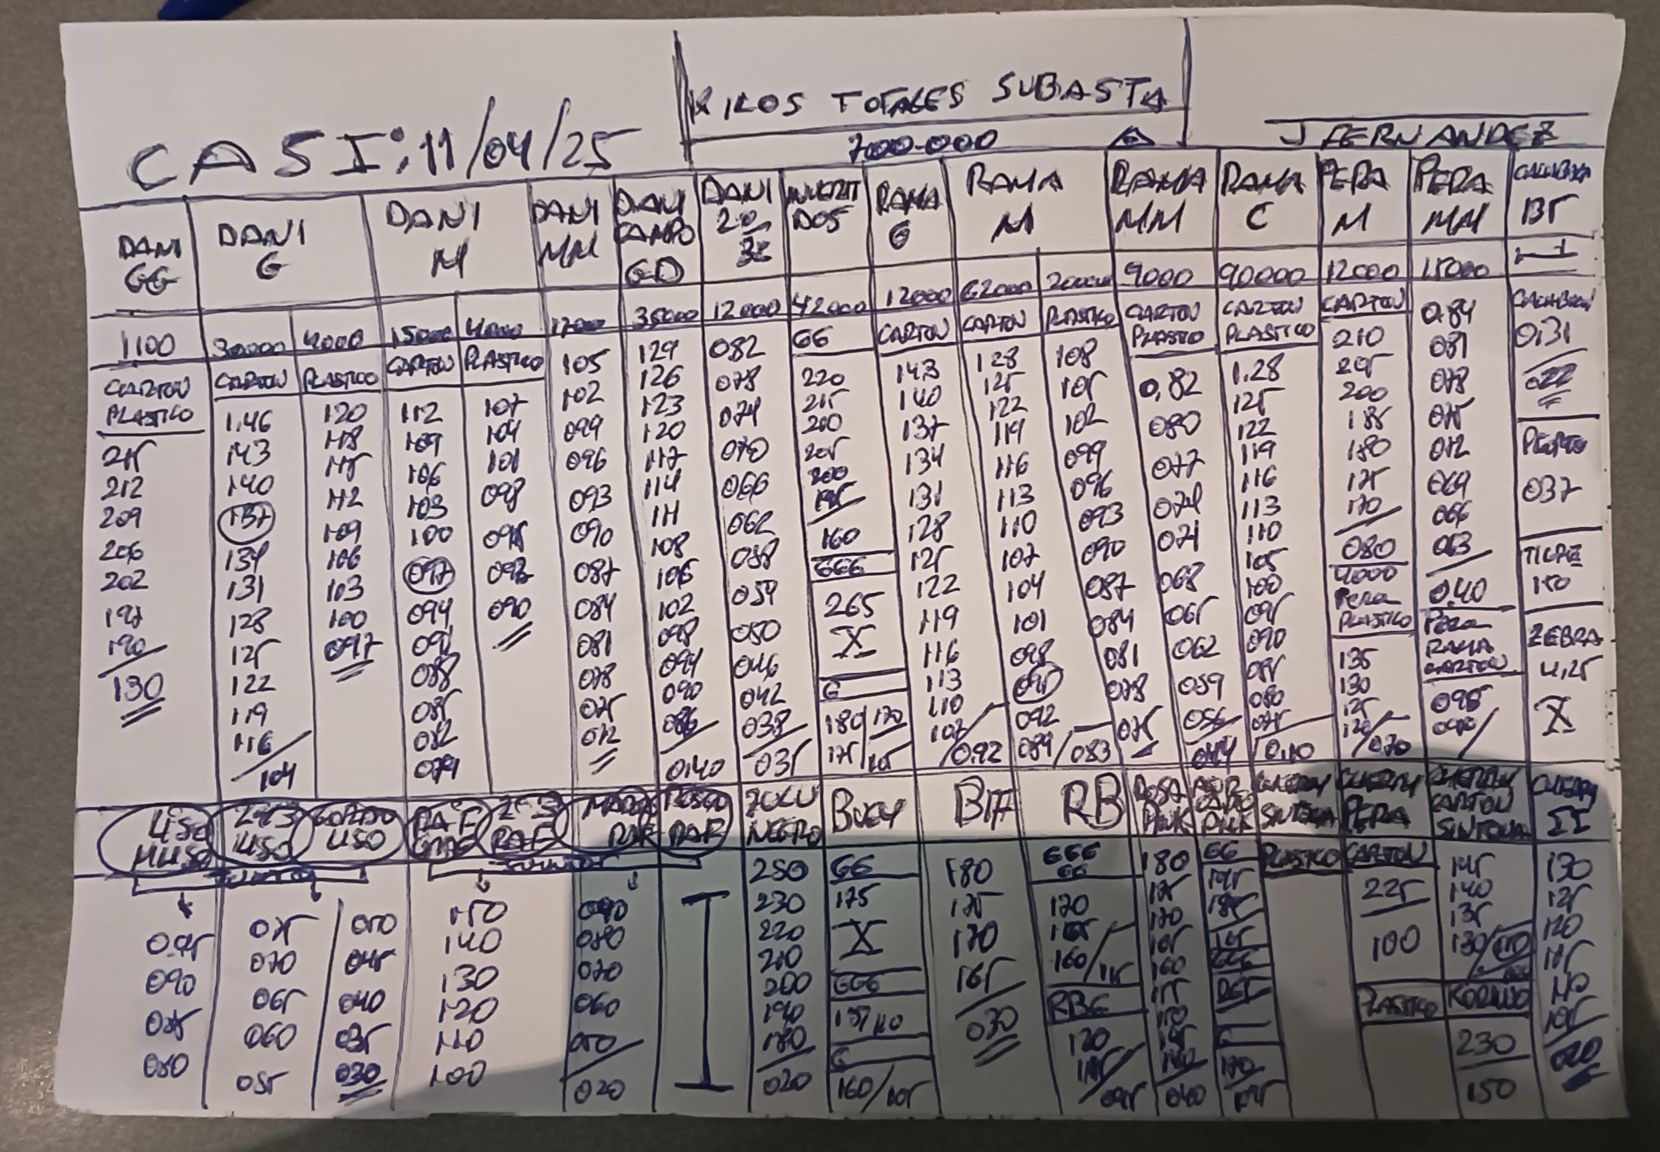 KILOS TOTALES SUBASTA
CASI: 11/04/25
700.000
J FERNANDEZ
DANI GG
DANI G
DANI M
DANI MM
DANI CAMPO GD
DANI 2ª/3ª
INVERTIDOS
RAMA G
RAMA M
RAMA MM
RAMA C
PERA M
PERA MM
CALABACIN
1100
30000 4000
15000 4000
17000
35000
12000
42000
12000
62000 20000
9000
90000
12000
15000
CARTON PLASTICO
215
212
209
206
202
197
190
130
CARTON
1.46
143
140
137
134
131
128
125
122
119
116
104
PLASTICO
120
118
115
112
109
106
103
100
097
CARTON
112
109
106
103
100
097
094
091
088
085
082
079
PLASTICO
107
104
101
098
095
093
090
105
102
099
096
093
090
087
084
081
078
075
072
129
126
123
120
117
114
111
108
106
102
098
094
090
086
040
082
078
074
070
066
062
058
054
050
046
042
038
035
GG
220
215
200
205
200
195
160
GGG
265
X
G
180/170
175/165
CARTON
143
140
137
134
131
128
125
122
119
116
113
110
107
0.92
CARTON
128
125
122
119
116
113
110
107
104
101
098
095
092
089/083
PLASTICO
108
105
102
099
096
093
090
087
084
081
078
075
CARTON PLASTICO
0,82
080
077
074
071
068
065
062
059
056
044
CARTON PLASTICO
1.28
125
122
119
116
113
110
105
100
095
090
085
080
075
CARTON
210
205
200
185
180
175
170
080
4000
PERA
PLASTICO
135
130
125
120/070
084
081
078
075
072
069
066
063
040
PERA
RAMA
CARTON
095
090
CALABACIN
0.31
022
PEPINO
037
TIGRE
150
ZEBRA
4,25
X
LISO
MLISO
2ª3
LISO
GORDO
LISO
RAF
GRDE
2ª3
RAF
RAF
RAF
ZULU
NEGRO
BUEY
B17
RB
ROSA
PINK
PINK
CHERRY
SINTONIA
CHERRY
PERA
CHERRY
CARTON
SINTONIA
CHERRY
II
JUNTOS
095
090
085
080
075
070
065
060
055
050
045
040
035
030
150
140
130
120
110
100
090
080
070
060
050
020
250
230
220
210
200
190
180
020
GG
175
X
GGG
G
160/105
180
175
170
165
030
GGG
GG
170
165
160/115
RBG
120
115
095
180
175
170
165
160
040
GG
PLASTICO
CARTON
225
100
PLASTICO
145
140
135
130
230
150
130
125
120
115
110
105
020